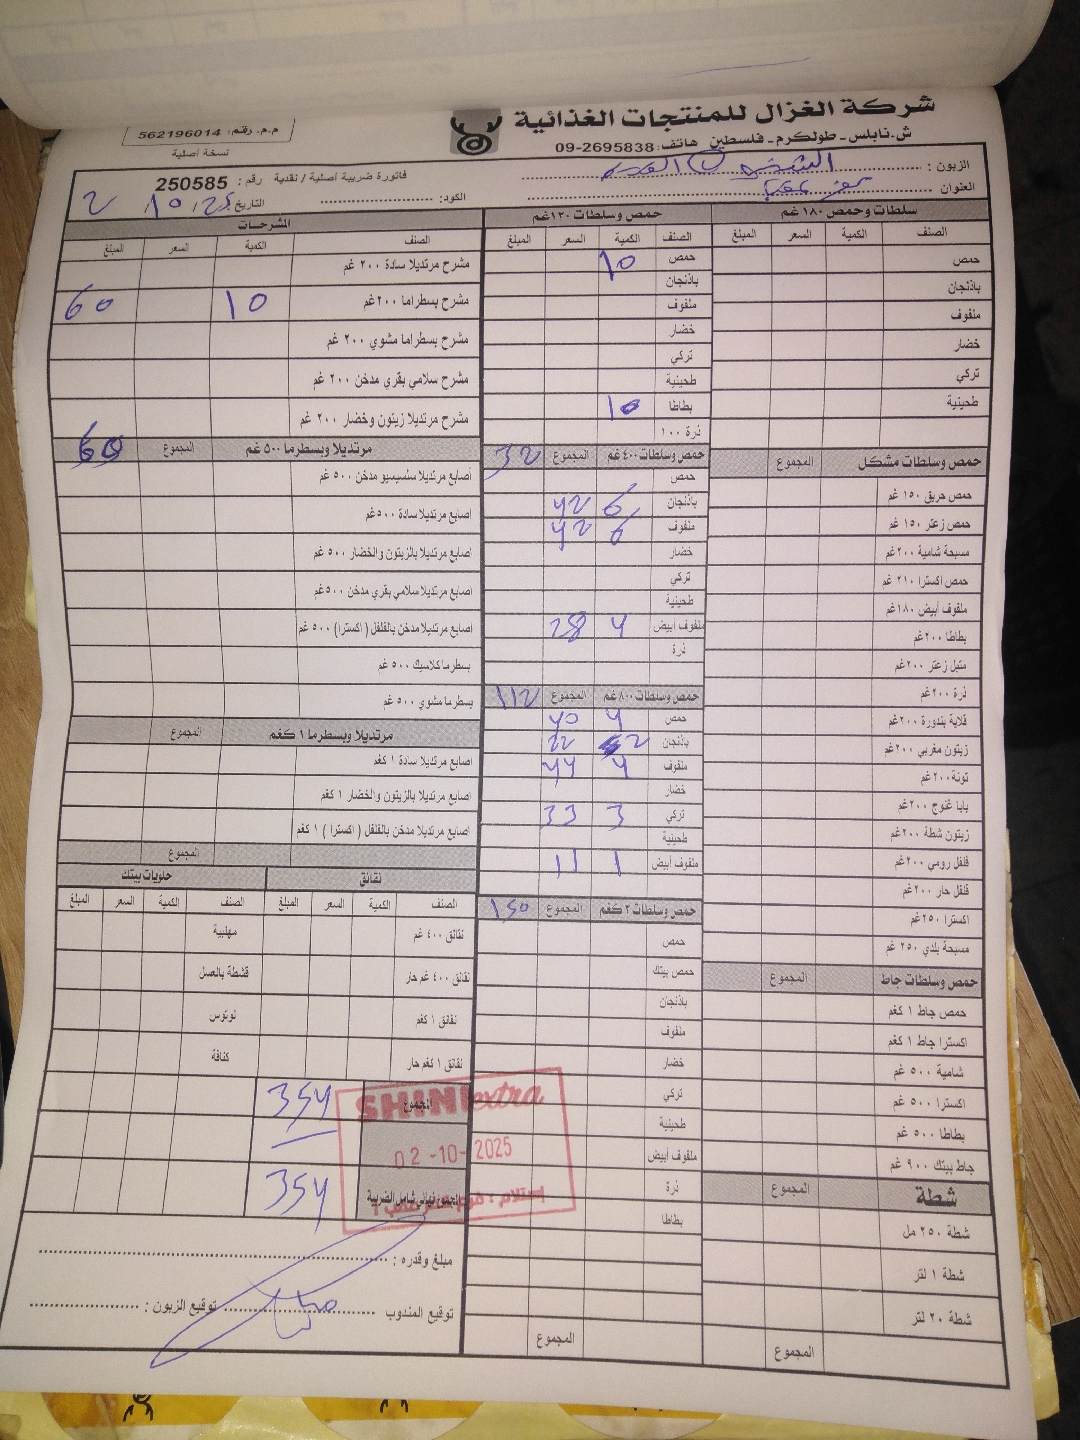 شركة الغزال للمنتجات الغذائية
ش.نابلس - طولكرم - فلسطين هاتف: 2695838-09
م.م. رقم: 562196014
نسخة أصلية
الزبون :
العنوان
فاتورة ضريبية أصلية / نقدية رقم: 250585
الكود: التاريخ: 2/10/25
سلطات وحمص ١٨٠ غم
الصنف الكمية السعر المبلغ
حمص
باذنجان
ملفوف
خضار
تركي
طحينية
حمص وسلطات مشكل المجموع
حمص حريق ١٥٠ غم
حمص زعتر ١٥٠ غم
مسبحة شامية ٢٠٠غم
حمص اكسترا ٢١٠ غم
ملفوف أبيض ١٨٠غم
بطاطا ٢٠٠غم
متبل زعتر ٢٠٠غم
ذرة ٢٠٠غم
قلاية بندورة ٢٠٠غم
زيتون مغربي ٢٠٠غم
تونة ٢٠٠غم
بابا غنوج ٢٠٠غم
زيتون شطة ٢٠٠غم
فلفل رومي ٢٠٠غم
فلفل حار ٢٠٠غم
اكسترا ٢٥٠غم
مسبحة بلدي ٢٥٠ غم
حمص وسلطات جاط المجموع
حمص جاط ١ كغم
اكسترا جاط ١ كغم
شامية ٥٠٠ غم
اكسترا ٥٠٠ غم
بطاطا ٥٠٠ غم
جاط بيتك ٩٠٠ غم
شطة المجموع
شطة ٢٥٠ مل
شطة ١ لتر
شطة ٢٠ لتر
المجموع
حمص وسلطات ١٣٠غم
الصنف الكمية السعر المبلغ
حمص 10
باذنجان
ملفوف
خضار
تركي
طحينية
بطاطا 10
ذرة ١٠٠
حمص وسلطات ٤٠٠ غم المجموع 32
حمص
باذنجان 6 42
ملفوف 6 42
خضار
تركي
طحينية
ملفوف أبيض 4 28
ذرة
حمص وسلطات ٨٠٠ غم المجموع 112
حمص 4 40
باذنجان 2 22
ملفوف 4 44
خضار
تركي 3 33
طحينية
ملفوف أبيض 1 11
حمص وسلطات ٣ كغم المجموع 150
حمص
حمص بيتك
باذنجان
ملفوف
خضار
تركي
طحينية
ملفوف أبيض
ذرة
بطاطا
المجموع
المشرحات
الصنف الكمية السعر المبلغ
مشرح مرتديلا سادة ٢٠٠ غم
مشرح بسطراما ٢٠٠غم 10 60
مشرح بسطراما مشوي ٢٠٠ غم
مشرح سلامي بقري مدخن ٢٠٠ غم
مشرح مرتديلا زيتون وخضار ٢٠٠ غم
مرتديلا وبسطرما ٥٠٠ غم المجموع 60
أصابع مرتديلا سلسيسيو مدخن ٥٠٠ غم
اصابع مرتديلا سادة ٥٠٠غم
اصابع مرتديلا بالزيتون والخضار ٥٠٠ غم
اصابع مرتديلا سلامي بقري مدخن ٥٠٠غم
اصابع مرتديلا مدخن بالفلفل ( اكسترا ) ٥٠٠ غم
بسطرما كلاسيك ٥٠٠ غم
بسطرما مشوي ٥٠٠ غم
مرتديلا وبسطرما ١ كغم المجموع
اصابع مرتديلا سادة ١ كغم
اصابع مرتديلا بالزيتون والخضار ١ كغم
اصابع مرتديلا مدخن بالفلفل ( اكسترا ) ١ كغم
المجموع
نقانق
الصنف الكمية السعر المبلغ
نقانق ٤٠٠ غم
نقانق ٤٠٠ غم حار
نقانق ١ كغم
نقانق ١ كغم حار
حلويات بيتك
الصنف الكمية السعر المبلغ
مهلبية
قشطة بالعسل
لوتوس
كنافة
المجموع 354
المجموع نهائي شامل الضريبة 354
SHINI extra
02-10-2025
إستلام :
مبلغ وقدره :
توقيع المندوب توقيع الزبون :